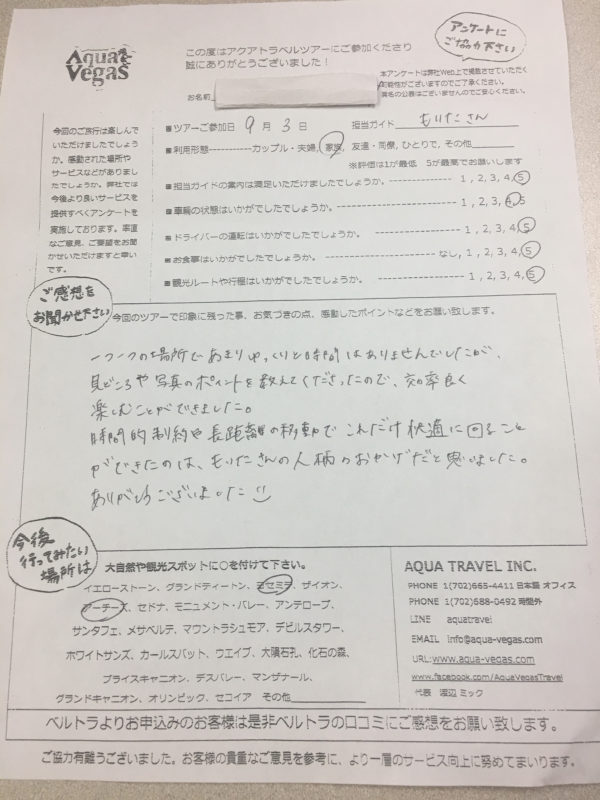 Aqua Vegas
この度はアクアトラベルツアーにご参加くださり
誠にありがとうございました！
アンケートに
ご協力下さい
本アンケートは弊社Web上で掲載させていただく
可能性がございますのでご了承ください。
実名の公表はございませんのでご安心ください。
お名前
今回のご旅行は楽しんで
いただけましたでしょう
か。感動された場所や
サービスなどがありまし
たでしょうか。弊社では
今後より良いサービスを
提供すべくアンケートを
実施しております。率直
なご意見、ご要望をお聞
かせいただけますと幸い
です。
■ツアーご参加日 9 月 3 日 担当ガイド もりたさん
■利用形態-----------カップル・夫婦, 家族, 友達・同僚, ひとりで, その他
※評価は1が最低 5が最高でお願いします
■担当ガイドの案内は満足いただけましたでしょうか。 1 , 2, 3, 4, 5
■車輌の状態はいかがでしたでしょうか。 1 , 2, 3, 4, 5
■ドライバーの運転はいかがでしたでしょうか。 1 , 2, 3, 4, 5
■お食事はいかがでしたでしょうか。 なし, 1 , 2, 3, 4, 5
■観光ルートや行程はいかがでしたでしょうか。 1 , 2, 3, 4, 5
ご感想を
お聞かせください
今回のツアーで印象に残った事、お気づきの点、感動したポイントなどをお願い致します。
一つ一つの場所であまりゆっくりと時間はありませんでしたが、
見どころや写真のポイントを教えてくださったので、効率良く
楽しむことができました。
時間的制約や長距離の移動でこれだけ快適に回ること
ができたのは、もりたさんの人柄のおかげだと思いました。
ありがとうございました
今後
行ってみたい
場所は
大自然や観光スポットに○を付けて下さい。
イエローストーン、グランドティートン、ヨセミテ、ザイオン、
アーチーズ、セドナ、モニュメント・バレー、アンテロープ、
サンタフェ、メサベルテ、マウントラシュモア、デビルスタワー、
ホワイトサンズ、カールスバット、ウエイブ、大隕石孔、化石の森、
ブライスキャニオン、デスバレー、マンザナー、
グランドキャニオン、オリンピック、セコイア その他
AQUA TRAVEL INC.
PHONE 1(702)665-4411 日本語 オフィス
PHONE 1(702)688-0492 時間外
LINE aquatravel
EMAIL info@aqua-vegas.com
URL:www.aqua-vegas.com
www.facebook.com/AquaVegasTravel
代表 渡辺 ミック
ベルトラよりお申込みのお客様は是非ベルトラの口コミにご感想をお願い致します。
ご協力有難うございました。お客様の貴重なご意見を参考に、より一層のサービス向上に努めてまいります。